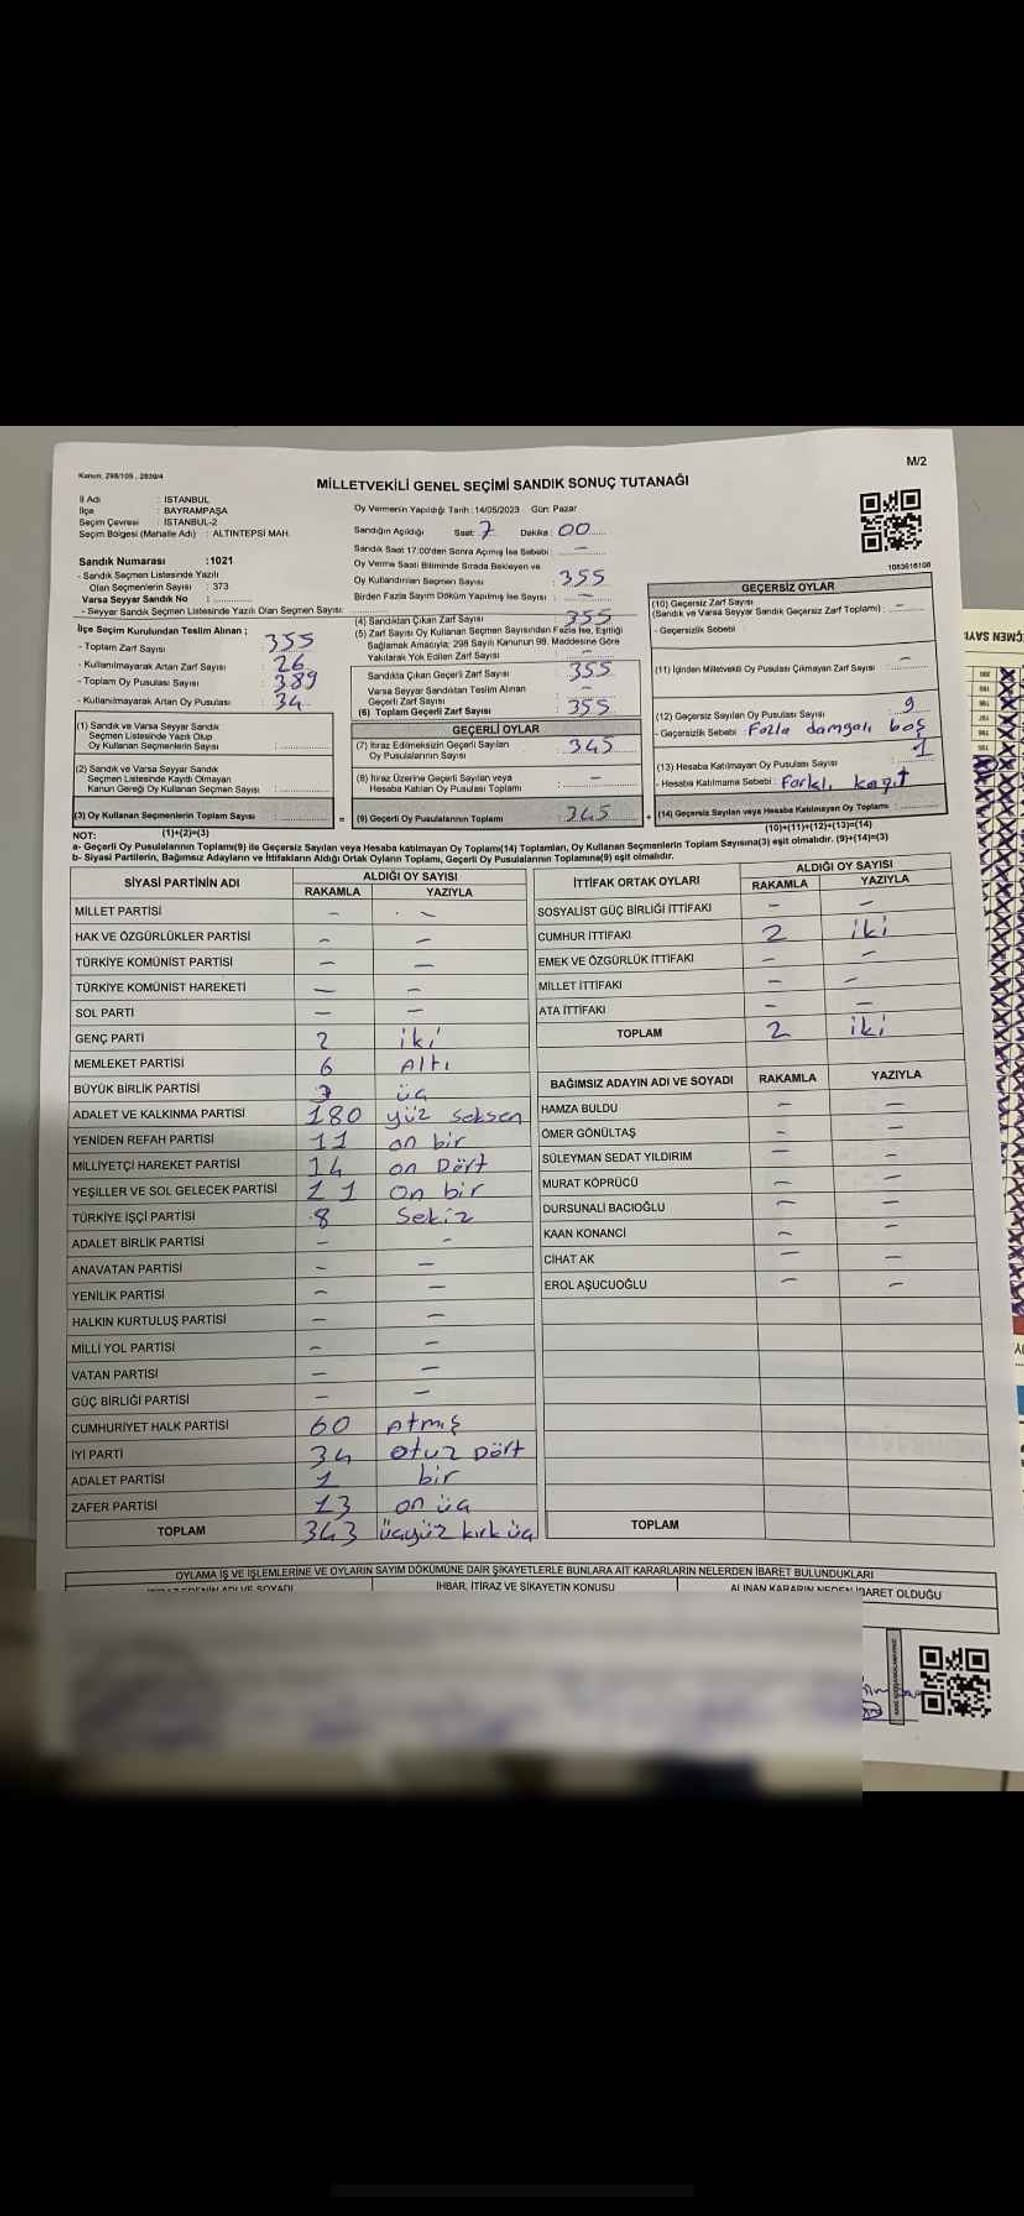 M/2
Kanun: 298/105, 2839/4
MİLLETVEKİLİ GENEL SEÇİMİ SANDIK SONUÇ TUTANAĞI
İl Adı : İSTANBUL
İlçe : BAYRAMPAŞA
Seçim Çevresi : İSTANBUL-2
Seçim Bölgesi (Mahalle Adı) : ALTINTEPSİ MAH.
Sandık Numarası :1021
- Sandık Seçmen Listesinde Yazılı
Olan Seçmenlerin Sayısı : 373
Varsa Seyyar Sandık No :
- Seyyar Sandık Seçmen Listesinde Yazılı Olan Seçmen Sayısı:
İlçe Seçim Kurulundan Teslim Alınan ;
- Toplam Zarf Sayısı : 355
- Kullanılmayarak Artan Zarf Sayısı : 26
- Toplam Oy Pusulası Sayısı : 389
- Kullanılmayarak Artan Oy Pusulası : 34
(1) Sandık ve Varsa Seyyar Sandık
Seçmen Listesinde Yazılı Olup
Oy Kullanan Seçmenlerin Sayısı :
(2) Sandık ve Varsa Seyyar Sandık
Seçmen Listesinde Kaydı Olmayan
Kanun Gereği Oy Kullanan Seçmen Sayısı :
(3) Oy Kullanan Seçmenlerin Toplam Sayısı :
Oy Vermenin Yapıldığı Tarih :14/05/2023 Gün: Pazar
Sandığın Açıldığı Saat: 7 Dakika: 00
Sandık Saat 17:00'den Sonra Açılmış İse Sebebi : -
Oy Verme Saati Bitiminde Sırada Bekleyen ve
Oy Kullandırılan Seçmen Sayısı : 355
Birden Fazla Sayım Döküm Yapılmış İse Sayısı : -
(4) Sandıktan Çıkan Zarf Sayısı : 355
(5) Zarf Sayısı Oy Kullanan Seçmen Sayısından Fazla İse, Eşitliği
Sağlamak Amacıyla, 298 Sayılı Kanunun 98. Maddesine Göre
Yakılarak Yok Edilen Zarf Sayısı : -
Sandıkta Çıkan Geçerli Zarf Sayısı : 355
Varsa Seyyar Sandıktan Teslim Alınan
Geçerli Zarf Sayısı : -
(6) Toplam Geçerli Zarf Sayısı : 355
GEÇERLİ OYLAR
(7) İtiraz Edilmeksizin Geçerli Sayılan
Oy Pusulalarının Sayısı : 345
(8) İtiraz Üzerine Geçerli Sayılan veya
Hesaba Katılan Oy Pusulası Toplamı : -
= (9) Geçerli Oy Pusulalarının Toplamı : 345
1083616108
GEÇERSİZ OYLAR
(10) Geçersiz Zarf Sayısı
(Sandık ve Varsa Seyyar Sandık Geçersiz Zarf Toplamı) : -
- Geçersizlik Sebebi
(11) İçinden Milletvekili Oy Pusulası Çıkmayan Zarf Sayısı : -
(12) Geçersiz Sayılan Oy Pusulası Sayısı : 9
- Geçersizlik Sebebi : Fazla damgalı boş
(13) Hesaba Katılmayan Oy Pusulası Sayısı : 1
- Hesaba Katılmama Sebebi : Farklı kağıt
+ (14) Geçersiz Sayılan veya Hesaba Katılmayan Oy Toplamı :
NOT: (1)+(2)=(3)
(10)+(11)+(12)+(13)=(14)
a- Geçerli Oy Pusulalarının Toplamı(9) ile Geçersiz Sayılan veya Hesaba katılmayan Oy Toplamı(14) Toplamları, Oy Kullanan Seçmenlerin Toplam Sayısına(3) eşit olmalıdır. (9)+(14)=(3)
b- Siyasi Partilerin, Bağımsız Adayların ve İttifakların Aldığı Ortak Oyların Toplamı, Geçerli Oy Pusulalarının Toplamına(9) eşit olmalıdır.
SİYASİ PARTİNİN ADI ALDIĞI OY SAYISI
RAKAMLA YAZIYLA
MİLLET PARTİSİ - -
HAK VE ÖZGÜRLÜKLER PARTİSİ - -
TÜRKİYE KOMÜNİST PARTİSİ - -
TÜRKİYE KOMÜNİST HAREKETİ - -
SOL PARTİ - -
GENÇ PARTİ 2 iki
MEMLEKET PARTİSİ 6 Altı
BÜYÜK BİRLİK PARTİSİ 3 üç
ADALET VE KALKINMA PARTİSİ 180 yüz seksen
YENİDEN REFAH PARTİSİ 11 on bir
MİLLİYETÇİ HAREKET PARTİSİ 14 on Dört
YEŞİLLER VE SOL GELECEK PARTİSİ 11 on bir
TÜRKİYE İŞÇİ PARTİSİ 8 Sekiz
ADALET BİRLİK PARTİSİ - -
ANAVATAN PARTİSİ - -
YENİLİK PARTİSİ - -
HALKIN KURTULUŞ PARTİSİ - -
MİLLİ YOL PARTİSİ - -
VATAN PARTİSİ - -
GÜÇ BİRLİĞİ PARTİSİ - -
CUMHURİYET HALK PARTİSİ 60 Atmış
İYİ PARTİ 34 otuz Dört
ADALET PARTİSİ 1 bir
ZAFER PARTİSİ 13 on üç
TOPLAM 343 üçyüz kırk üç
İTTİFAK ORTAK OYLARI ALDIĞI OY SAYISI
RAKAMLA YAZIYLA
SOSYALİST GÜÇ BİRLİĞİ İTTİFAKI - -
CUMHUR İTTİFAKI 2 iki
EMEK VE ÖZGÜRLÜK İTTİFAKI - -
MİLLET İTTİFAKI - -
ATA İTTİFAKI - -
TOPLAM 2 iki
BAĞIMSIZ ADAYIN ADI VE SOYADI RAKAMLA YAZIYLA
HAMZA BULDU - -
ÖMER GÖNÜLTAŞ - -
SÜLEYMAN SEDAT YILDIRIM - -
MURAT KÖPRÜCÜ - -
DURSUNALİ BACIOĞLU - -
KAAN KONANCİ - -
CİHAT AK - -
EROL AŞUCUOĞLU - -
TOPLAM
OYLAMA İŞ VE İŞLEMLERİNE VE OYLARIN SAYIM DÖKÜMÜNE DAİR ŞİKAYETLERLE BUNLARA AİT KARARLARIN NELERDEN İBARET BULUNDUKLARI
İTİRAZ EDENİN ADI VE SOYADI İHBAR, İTİRAZ VE ŞİKAYETİN KONUSU ALINAN KARARIN NEDEN İBARET OLDUĞU